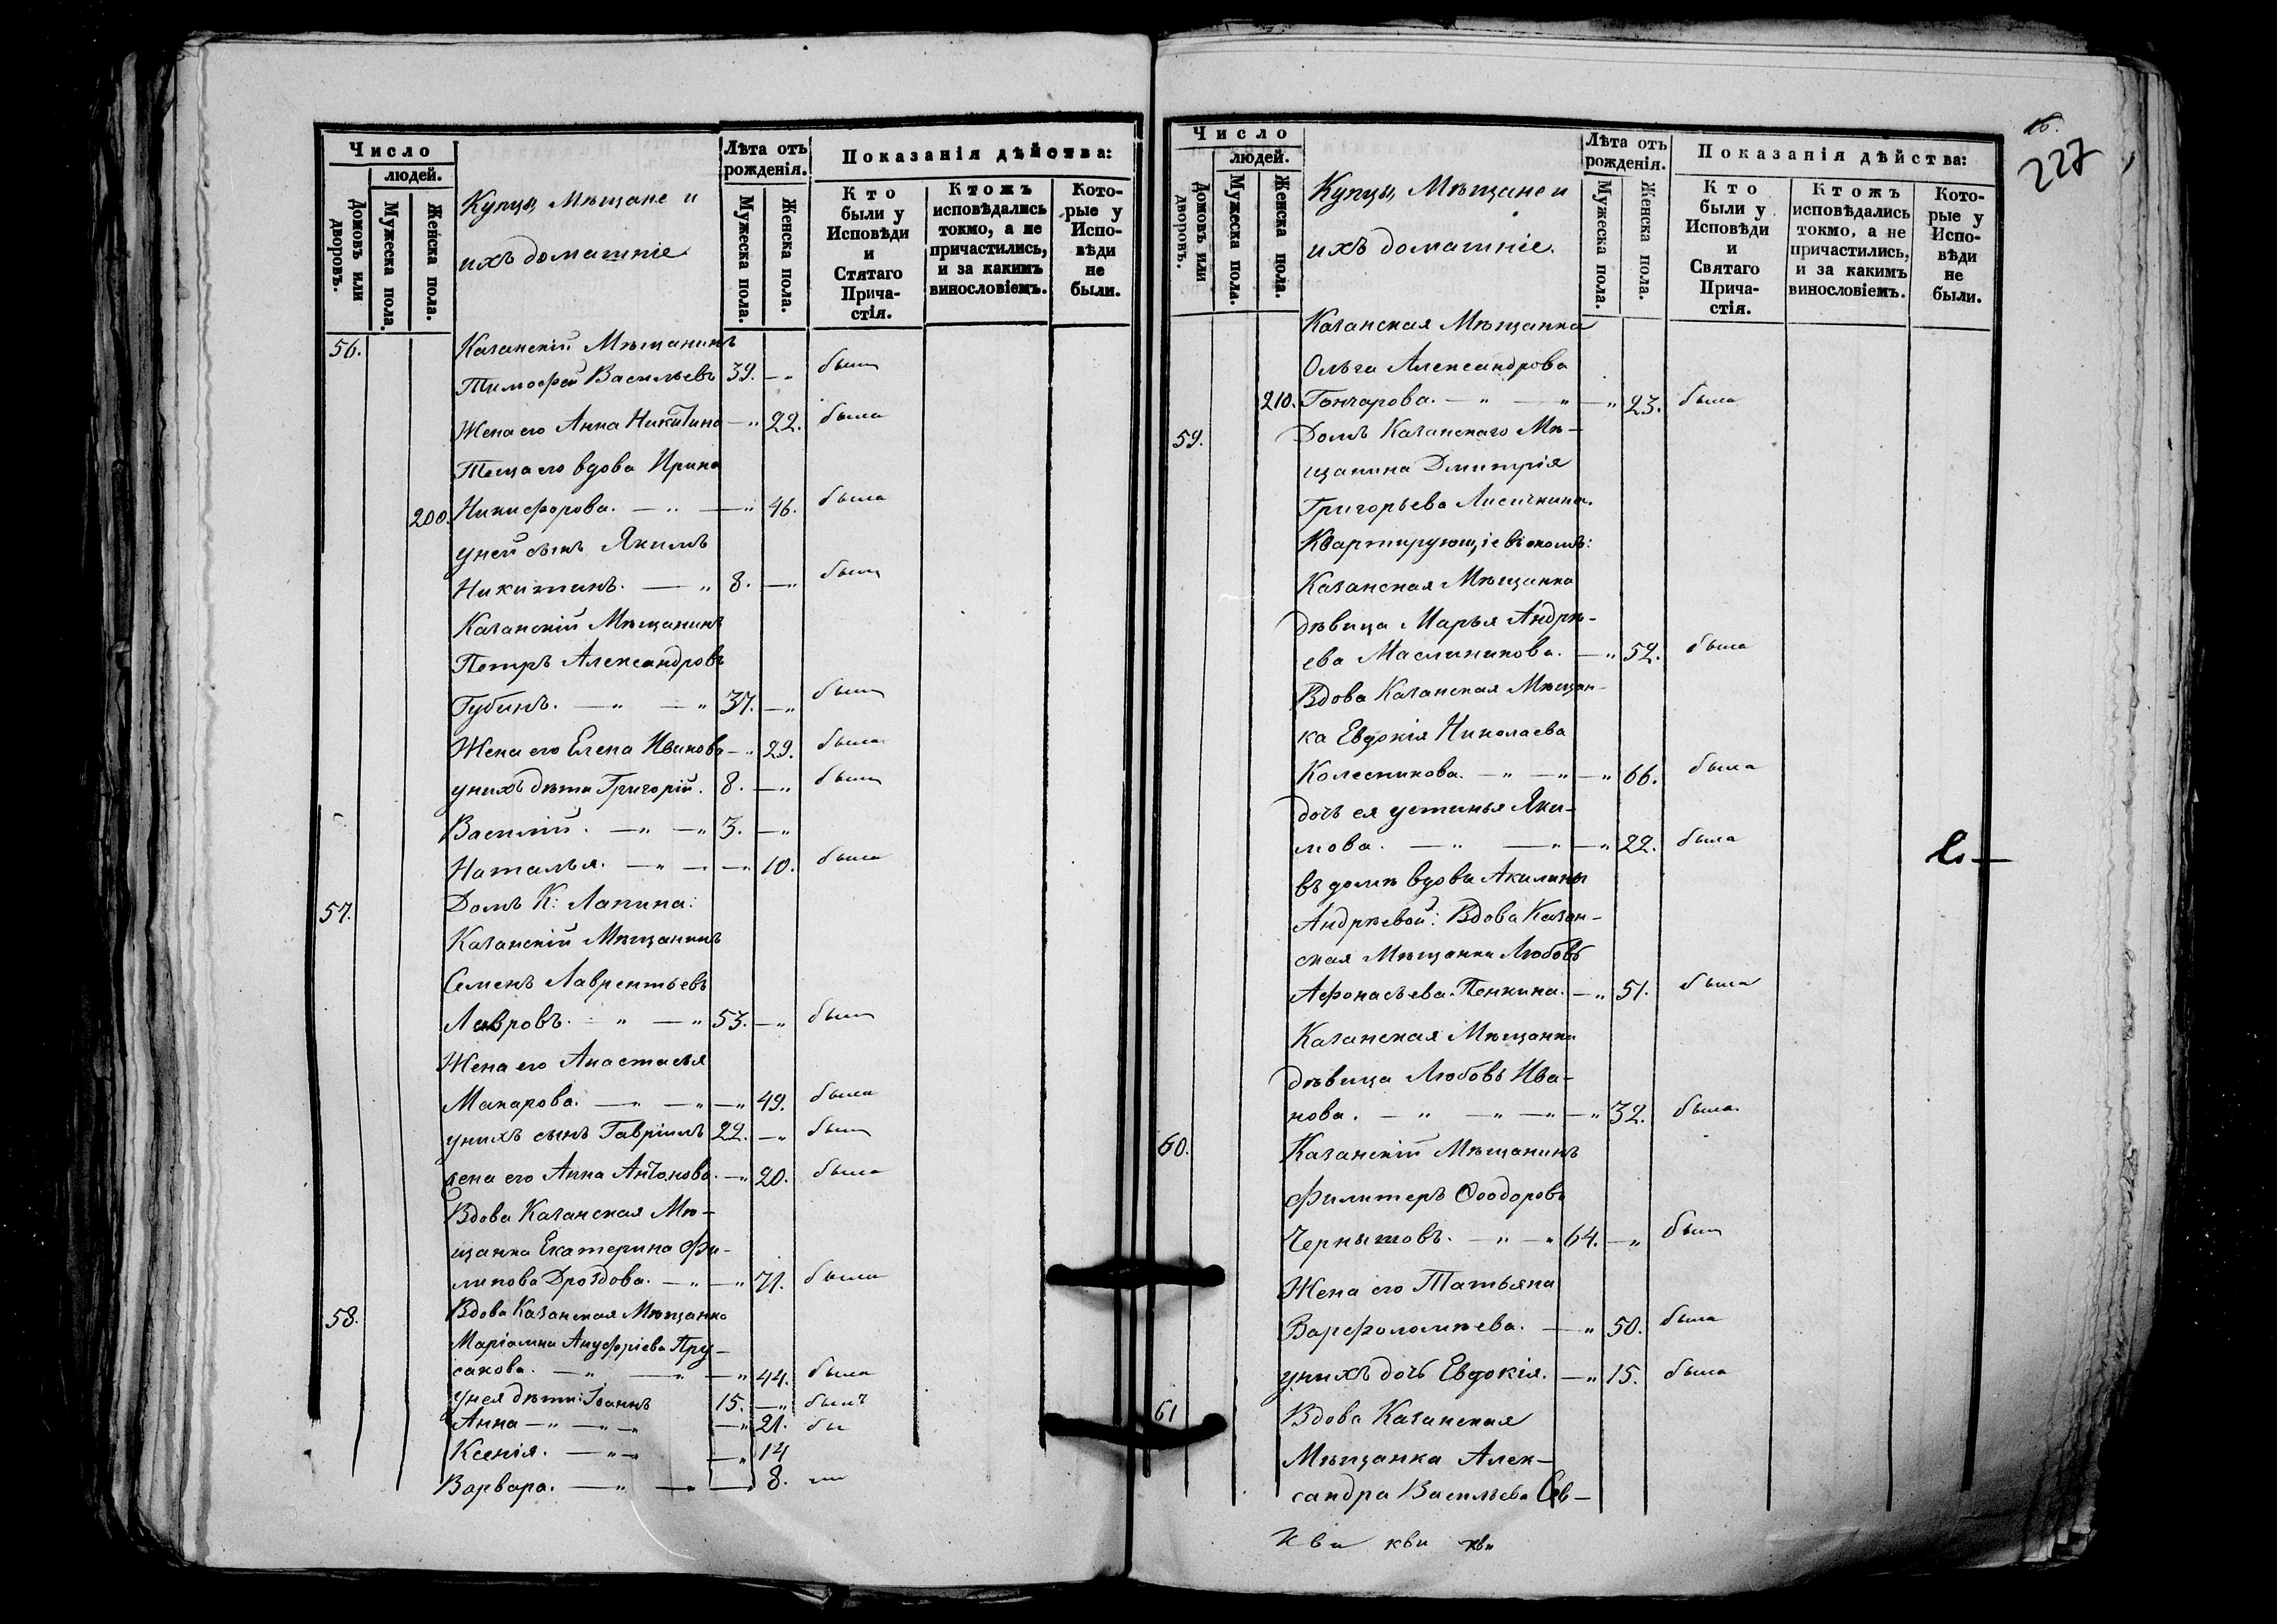 Число
людей.
Домовъ или дворовъ.
Мужеска пола.
Женска пола.
Купцы, Мѣщане и
ихъ домашніе
Лѣта отъ рожденія.
Мужеска пола.
Женска пола.
Показанія дѣйства:
Кто были у Исповѣди и Стятаго Причастія.
Ктожъ исповѣдались токмо, а не причастились, и за какимъ винословіемъ.
Которые у Исповѣди не были.
56. Казанскій Мѣщанинъ
Тимофей Васильевъ 39. —„ былъ
Жена его Анна Никитина —„ 22. была
Теща его вдова Ирина
200. Никифорова. —„ —„ 46. была
у ней сынъ Якимъ
Никитинъ. —„ 8. —„ былъ
Казанскій Мѣщанинъ
Петръ Александровъ
Губинъ. —„ —„ 37. —„ былъ
Жена его Елена Иванова —„ 29. была
у нихъ дѣти Григорій. 8. —„ былъ
Василій. —„ —„ 3. —„
Наталья. —„ — —„ 10. была
57. Домъ К: Лапина:
Казанскій Мѣщанинъ
Семенъ Лаврентьевъ
Лавровъ. —„ —„ 53. —„ былъ
Жена его Анастасья
Макарова. —„ —„ —„ 49. была
у нихъ сынъ Гавріилъ 22. —„ былъ
жена его Анна Антонова. —„ 20. была
Вдова Казанская Мѣ-
щанка Екатерина Фи-
липова Дроздова. —„ —„ 71. была
58. Вдова Казанская Мѣщанка
Маріамна Ануфріева Пру-
сакова. —„ —„ —„ 44. была
у нея дѣти: Іоаннъ 15. —„ былъ
Анна —„ —„ —„ 21. бы
Ксенія. —„ —„ 14
Варвара. —„ — — 8.
16.
227
Число
людей.
Домовъ или дворовъ.
Мужеска пола.
Женска пола.
Купцы, Мѣщане и
ихъ домашніе.
Лѣта отъ рожденія.
Мужеска пола.
Женска пола.
Показанія дѣйства:
Кто были у Исповѣди и Святаго Причастія.
Ктожъ исповѣдались токмо, а не причастились, и за какимъ винословіемъ.
Которые у Исповѣди не были.
Казанская Мѣщанка
Ольга Александрова
210. Гончарова. —„ —„ —„ 23. была
59. Домъ Казанскаго Мѣ-
щанина Дмитрія
Григорьева Лисичкина.
Квартирующіе въ ономъ:
Казанская Мѣщанка
дѣвица Марья Андрѣ-
ева Масленикова. —„ 52. была
Вдова Казанская Мѣщан-
ка Евдокія Николаева
Колесникова. —„ —„ —„ 66. была
дочь ея устинья Яки-
мова. —„ —„ —„ 22. была
въ домѣ вдовы Акилины
Андрѣевой: Вдова Казан-
ская Мѣщанка Любовь
Афонасьева Пенкина. —„ 51. была
Казанская Мѣщанка
дѣвица Любовь Ива-
нова. —„ —„ —„ —„ 32. была.
60. Казанскій Мѣщанинъ
Филитеръ Ѳеодоровъ
Чернышовъ. —„ —„ 64. —„ былъ
Жена его Татьяна
Варфоломѣева. —„ 50. была
у нихъ дочь Евдокія. —„ 15. была
61 Вдова Казанская
Мѣщанка Алек-
сандра Васильева Сев-
кви кви кви